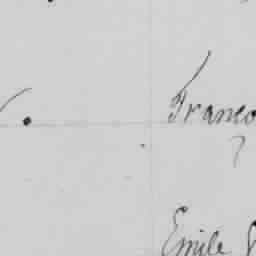 Franco
Emile